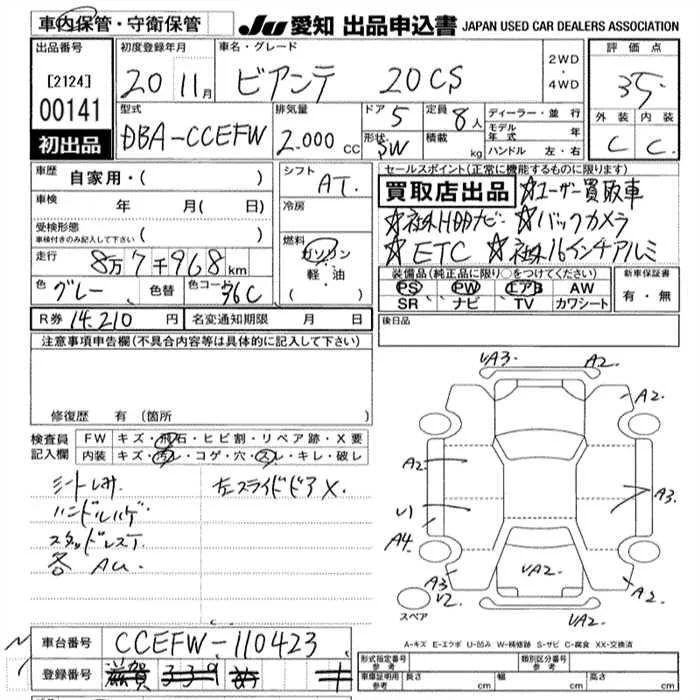 車内保管・守衛保管
JU 愛知 出品申込書 JAPAN USED CAR DEALERS ASSOCIATION
出品番号
[2124]
00141
初出品
初度登録年月
20 11月
車名・グレード
ビアンテ 20CS
2WD
・
4WD
評価点
3.5
外装 内装
C C
型式
DBA-CCEFW
排気量
2.000 CC
ドア 5
定員 8人
形状 SW
積載 kg
ディーラー・並行
モデル年式 年
ハンドル 左・右
車歴 自家用・( )
車検 年 月( 日)
受検形態
車検付きのみ記入して下さい ( )
走行 8万7千968km
色 グレー 色替 色コード 36C
シフト AT.
冷房
燃料
ガソリン
軽・油
( )
セールスポイント(正常に機能するものに限ります)
買取店出品 ☆ユーザー買取車
☆社外HDDナビ ☆バックカメラ
☆ETC ☆社外16インチアルミ
装備品(純正品に限り○をつけてください)
PS PW エアB AW
SR ナビ TV カワシート
新車保証書
有・無
R券 14.210 円 名変通知期限 月 日
後日品
注意事項申告欄(不具合内容等は具体的に記入して下さい)
修復歴 有(箇所 )
検査員記入欄
FW キズ・飛石・ヒビ割・リペア跡・X要
内装 キズ・汚レ・コゲ・穴・スレ・キレ・破レ
シートしみ 左スライドドアX.
ハンドルハゲ
スタッドレスT.
各AU.
VA3. A2.
A2.
A2
U1
A4
A3
V2
A3.
VA2.
A2
VA2.
スペア
A-キズ E-エクボ U-凹み W-補修跡 S-サビ C-腐食 XX-交換済
車台番号 CCEFW-110423
登録番号 滋賀 339
形式指定番号 参考
類別区分番号 参考
車庫証明用 参考 長さ cm 幅 cm 高さ cm